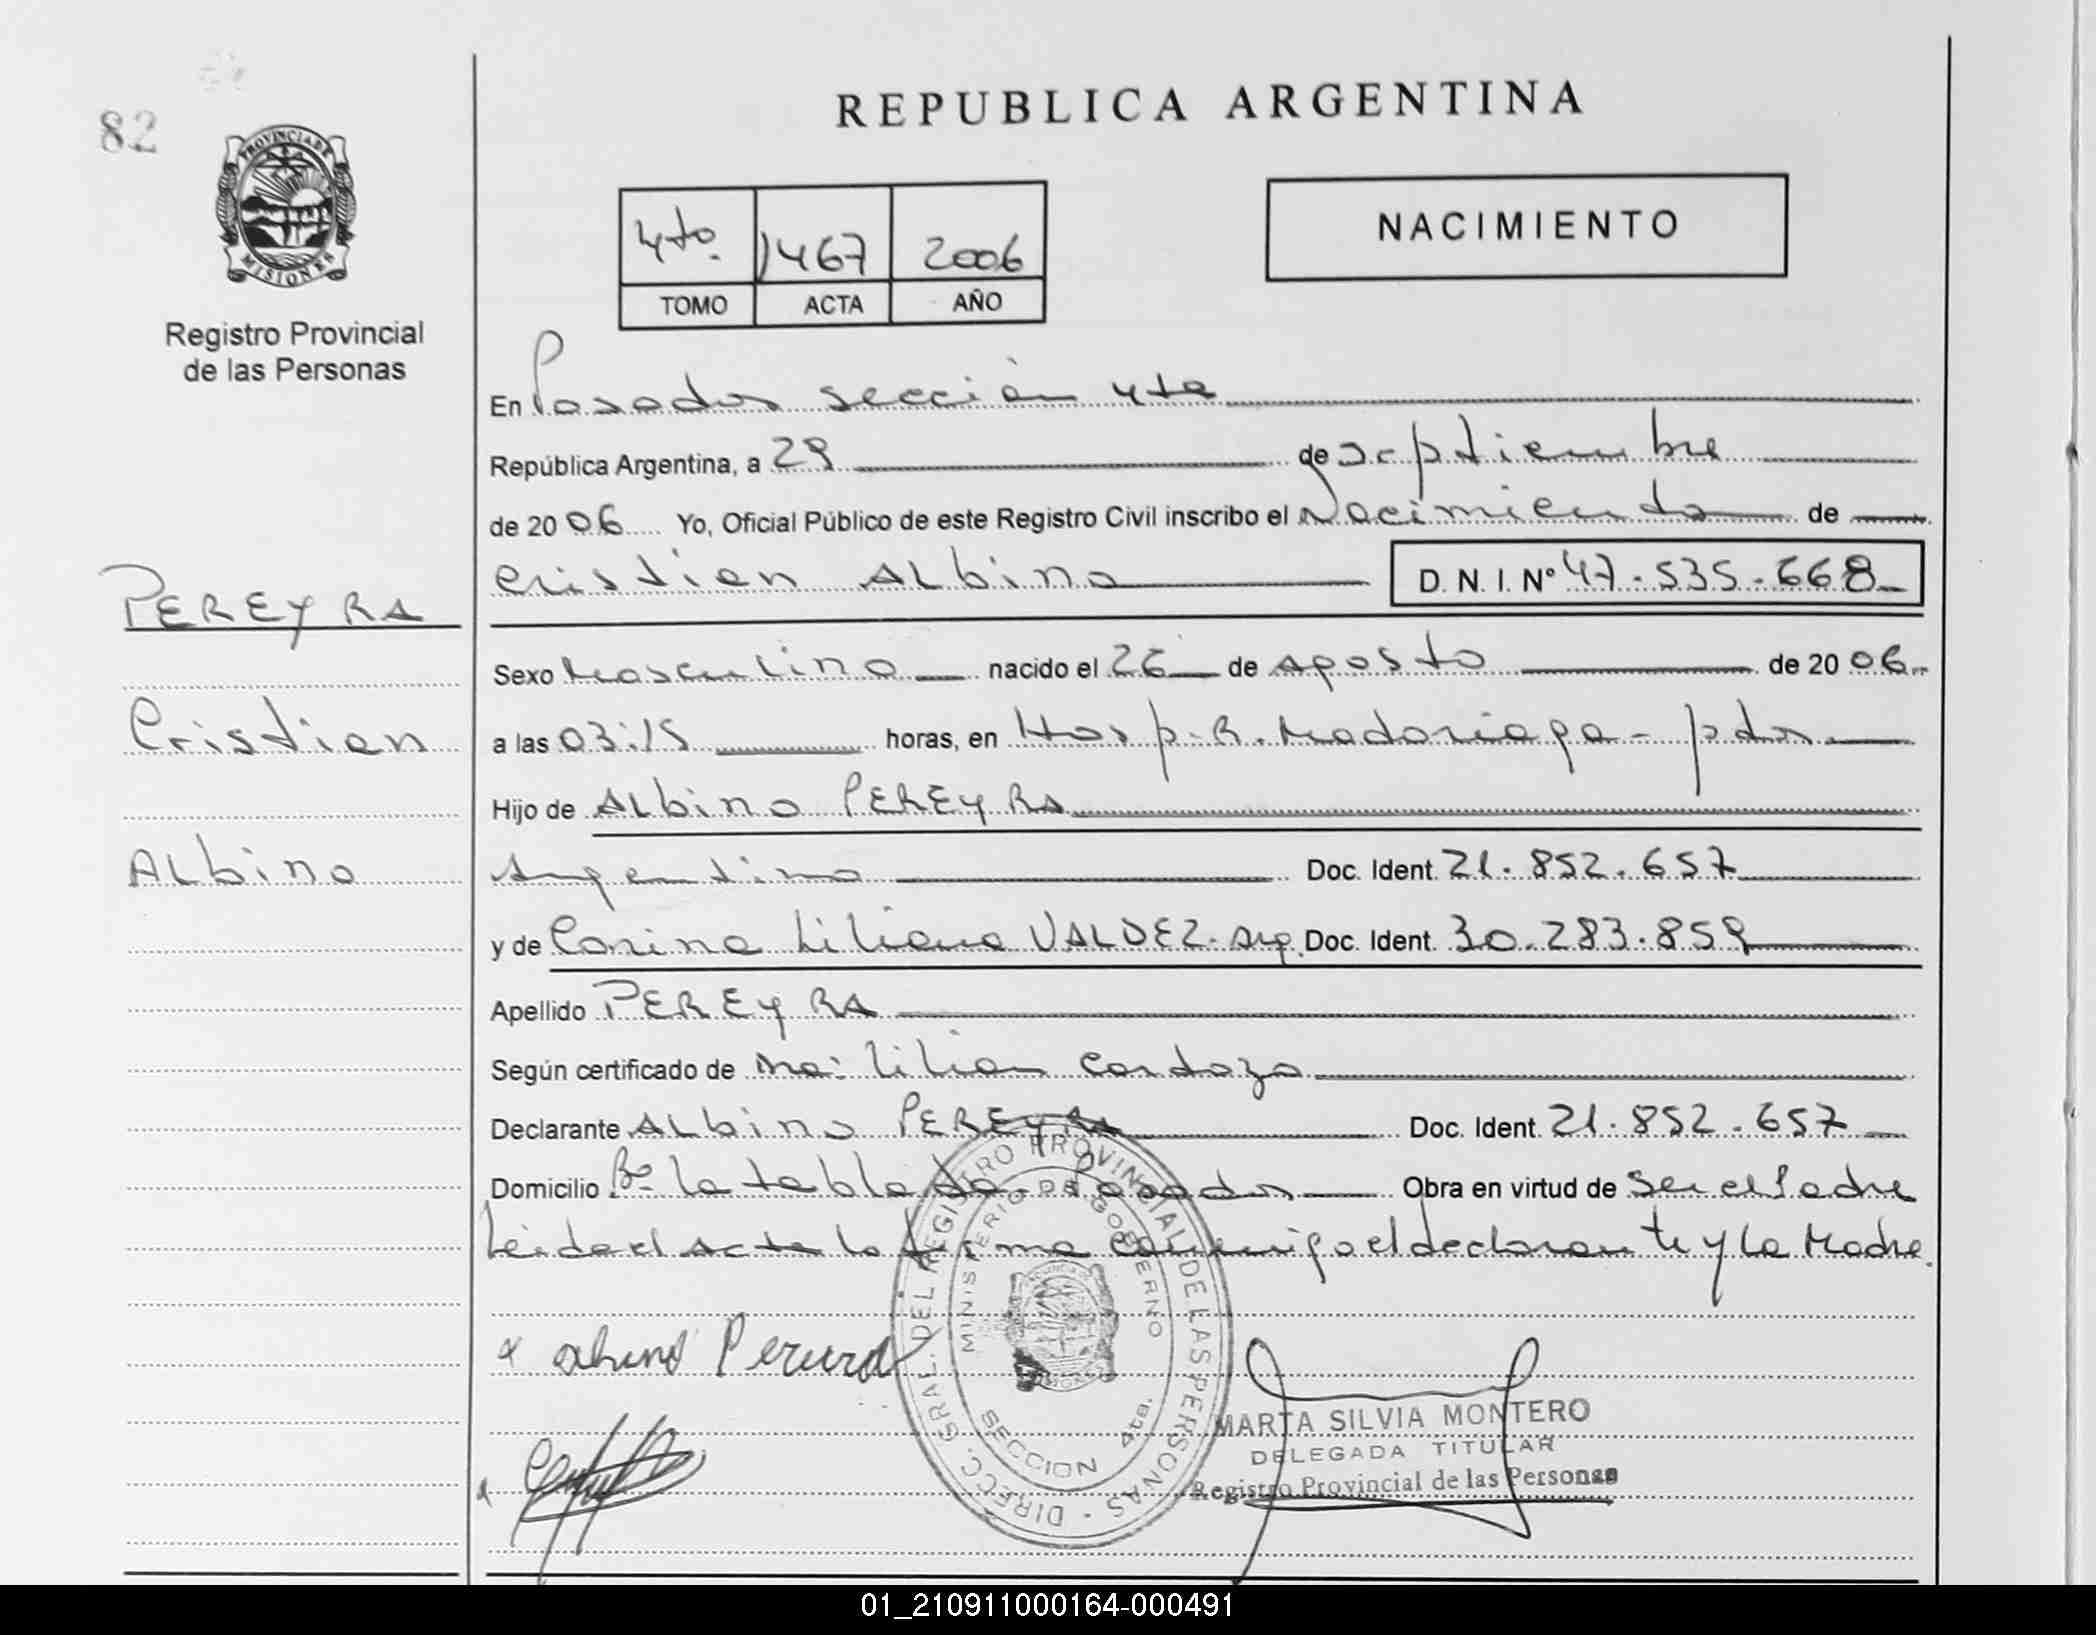 82
PROVINCIA DE
MISIONES
Registro Provincial
de las Personas
REPUBLICA ARGENTINA
4to. 1467 2006
TOMO ACTA AÑO
NACIMIENTO
En Posadas sección 4ta
República Argentina, a 29 de septiembre
de 20 06 Yo, Oficial Público de este Registro Civil inscribo el Nacimiento de
Cristian ALbino D. N. I. Nº 47.535.668
PEREYRA
Cristian
ALbino
Sexo Masculino nacido el 26 de Agosto de 20 06
a las 03:15 horas, en Hosp. R. Madariaga - pdas.
Hijo de ALbino PEREYRA
Argentino Doc. Ident. 21.852.657
y de Corina Liliana VALDEZ. Arg. Doc. Ident. 30.283.859
Apellido PEREYRA
Según certificado de Liliam Cardozo
Declarante ALbino PEREYRA Doc. Ident. 21.852.657
Domicilio Bº La tablada - Posadas Obra en virtud de Ser el Padre
Leida el Acta la firma conmigo el declarante y la Madre.
DIRECC. GRAL. DEL REGISTRO PROVINCIAL DE LAS PERSONAS
MINISTERIO DE GOBIERNO
SECCION 4ta.
MARTA SILVIA MONTERO
DELEGADA TITULAR
Registro Provincial de las Personas
01_210911000164-000491